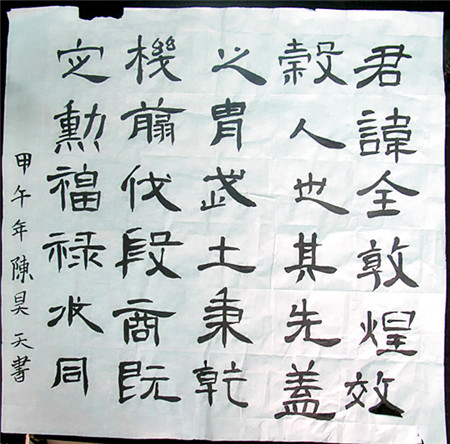 君諱全敦煌效
穀人也其先蓋
之胄武土秉乾
機翦伐段商既
定勳福祿攸同
甲午年陳昊天書